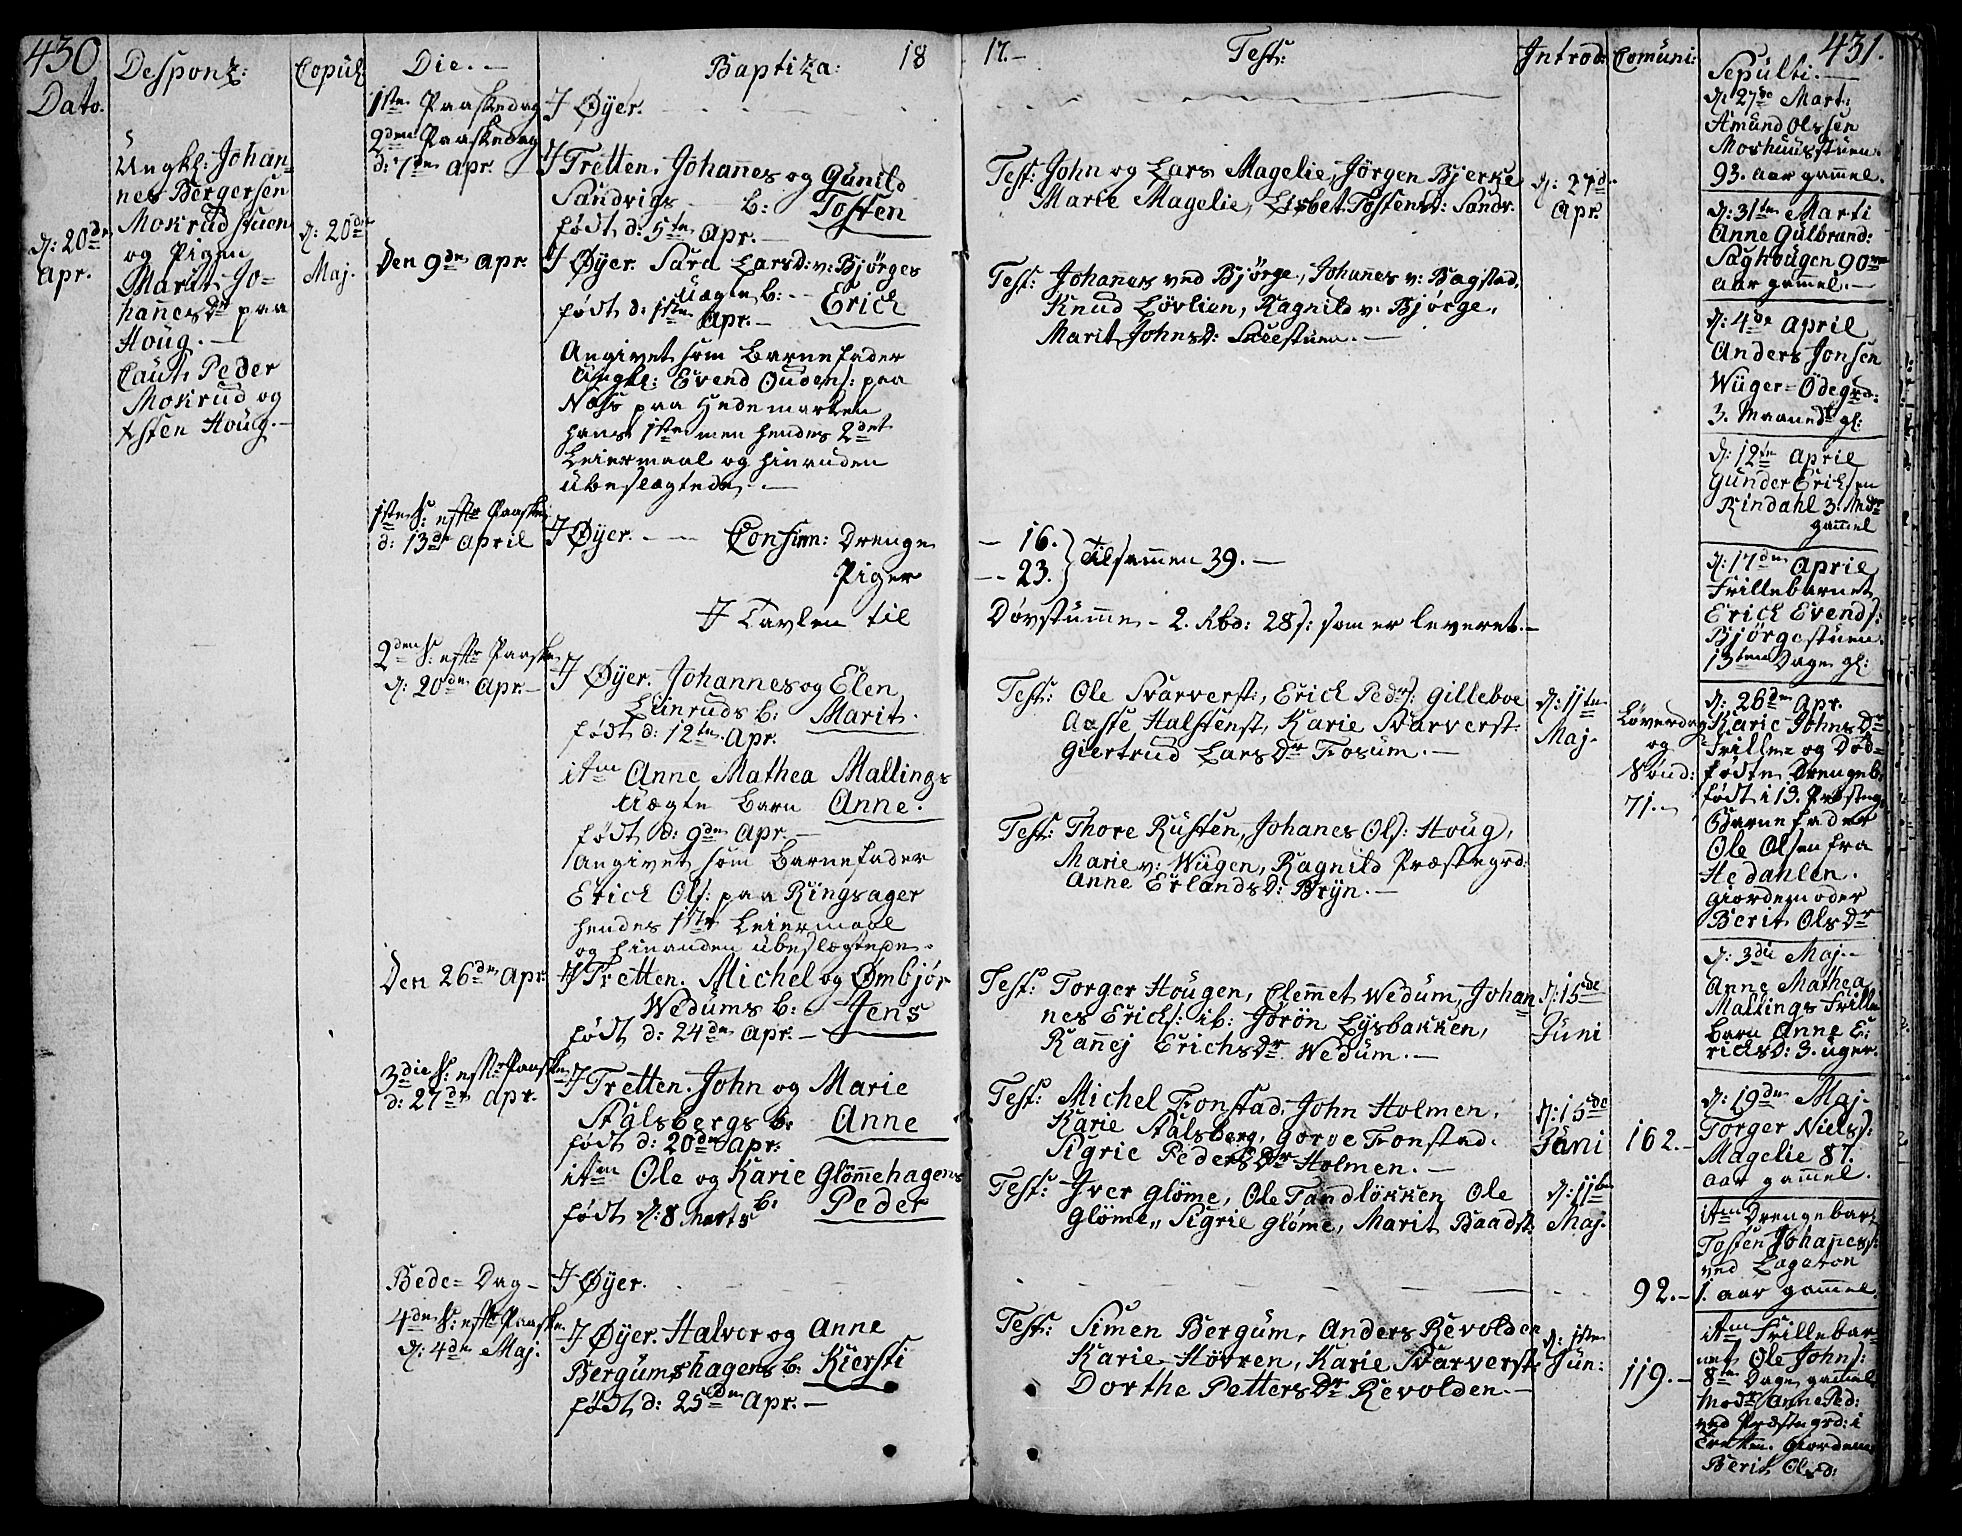 430
Dato.
Desponz:
Copul
Die.
Baptiza:
18
17.
Test:
Introd:
Comuni:
431.
Sepulti.
d: 20de
Apr.
Ungkl: Johan=
nes Börgersen
Mokrud stuen
og Pigen
Marit Jo=
hannesDr paa
Houg.
Caut: Peder
Mokrud og
Asten Houg.
d: 20de
Maj.
1ste Paaskedag
I Øyer.
2den Paaskedag
d: 7de Apr.
I Tretten. Johannes og Gunild
Sandvigs b: Tosten
født d: 5te Apr.
Test: John og Lars Magelie, Jörgen Bjerke
Marie Magelie, Lisbet Tostensd: Sandv.
d: 27de
Apr.
Den 9de Apr.
I Øyer. Sara Larsd: v: Bjørges
Uægte b: Erich
født d: 1ste Apr.
Angivet som Barnefader
Ungkl: Evend Oudens: paa
Næs paa Hedemarken
hans 1ste men hendes 2det
Leiermaal og hinanden
ubeslægtede.
Test: Johannes ved Bjørge, Johanes v: Bagstad,
Knud Lövlien, Ragnild v: Bjørge,
Marit Johnsd: stuen.
1ste S: efter Paaske
d: 13de April
I Øyer. Confirm: Drenge
16.
Piger
23.
Tilsammen 39.
I Tavlen til
Døvstumme 2. Rbd: 28 s: som er leveret.
2den S: efter Paaske
d: 20de Apr.
I Øyer. Johannes og Elen
Leinruds b: Marit.
født d: 12te Apr.
Test: Ole Svarverst:, Erich Peds: Gilleboe
Aaste Halstenst, Karie Svarverst
Giertrud LarsDr Fosum.
d: 11te
Maj.
Löverdag
og
Sönd:
71.
itm Anne Mathea Mallings
Uægte Barn Anne.
født d: 9de Apr.
Angivet som Barnefader
Erich Ols: paa Ringsager
hendes 1ste Leiermaal
og hinanden ubeslægtede.
Test: Thore Rusten, Johanes Ols: Houg,
Marie v: Wügen, Ragnild Præstegrd:
Anne Erlandsd: Bryn.
Den 26de Apr.
I Tretten. Michel og Ømbjør
Wedums b: Jens
født d: 24de Apr.
Test: Torger Hougen, Clemmet Wedum, Johan
nes Erichs: ib: Jörön Lysbakken,
Rannej ErichsDr Wedum.
d: 15de
Juni
3die S: efter Paaske
d: 27de Apr.
I Tretten. John og Marie
Stalsbergs b: Anne
født d: 20de Apr:
Test: Michel Fonstad, John Holmen,
Karie Stalsberg, Gorve Fonstad.
Sigrie PedersDr Holmen.
d: 15de
Juni
162.
itm Ole og Karie Glömmehagens
b: Peder
født d: 8 Marts
Test: Iver Glöme, Ole Tandløkken, Ole
Glöme, Sigrie Glöme, Marit Baadst.
d: 11te
Maj.
Bede= Dag
I Øyer.
92.
4de S: efter Paaske
d: 4de Maj.
I Øyer. Halvor og Anne
Bergumshagens b: Kiersti
født d: 25de Apr.
Test: Simen Bergum, Anders Revolden
Karie Hövren, Karie Svarverst:
Dorthe PettersDr Revolden.
d: 1ste
Jun:
119.
d: 27de Mart:
Amund Olssen
Moshuusstuen.
93. aar gammel.
d: 31te Marti
Anne Gulbrand:
Saghougen 90
aar gammel.
d: 4de April
Anders Jonsen
Wüger=Ödegrd:
3. Maaneder gl:
d: 12te April
Gunder Erichsen
Rindahl 3. Mdr
gammel
d: 17de April
Frillebarnet
Erich Evends:
Bjørgestuen.
13ten Dage gl:
d: 26de Apr.
Karie JohnsDr
Frille= og Död=
födte Drengeb:
født i 13. Præsteg.
Barnefader
Ole Olsen fra
Hedahlen.
Giordemoder
Berit OlsDr
d: 3die Maj.
Anne Mathea
Mallings Frille
barn Anne E:
richsd: 3. uger.
d: 19de Maj.
Torger Niels:
Magelie 87.
aar gammel.
itm Drengebar
Tosten Johannes:
ved Lageson
1. aar gammel.
itm Frillebar=
net Ole Johns:
8te Dage gammel
Modr Anne Ped:
ved Præstegrd: i
Tretten. Giordem
Berit Olsd: